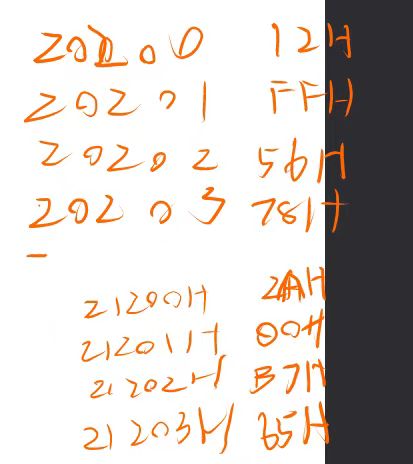 20200 12H
20201 FFH
20202 56H
20203 78H
-
21200H 2AH
21201H 00H
21202H B7H
21203H 65H